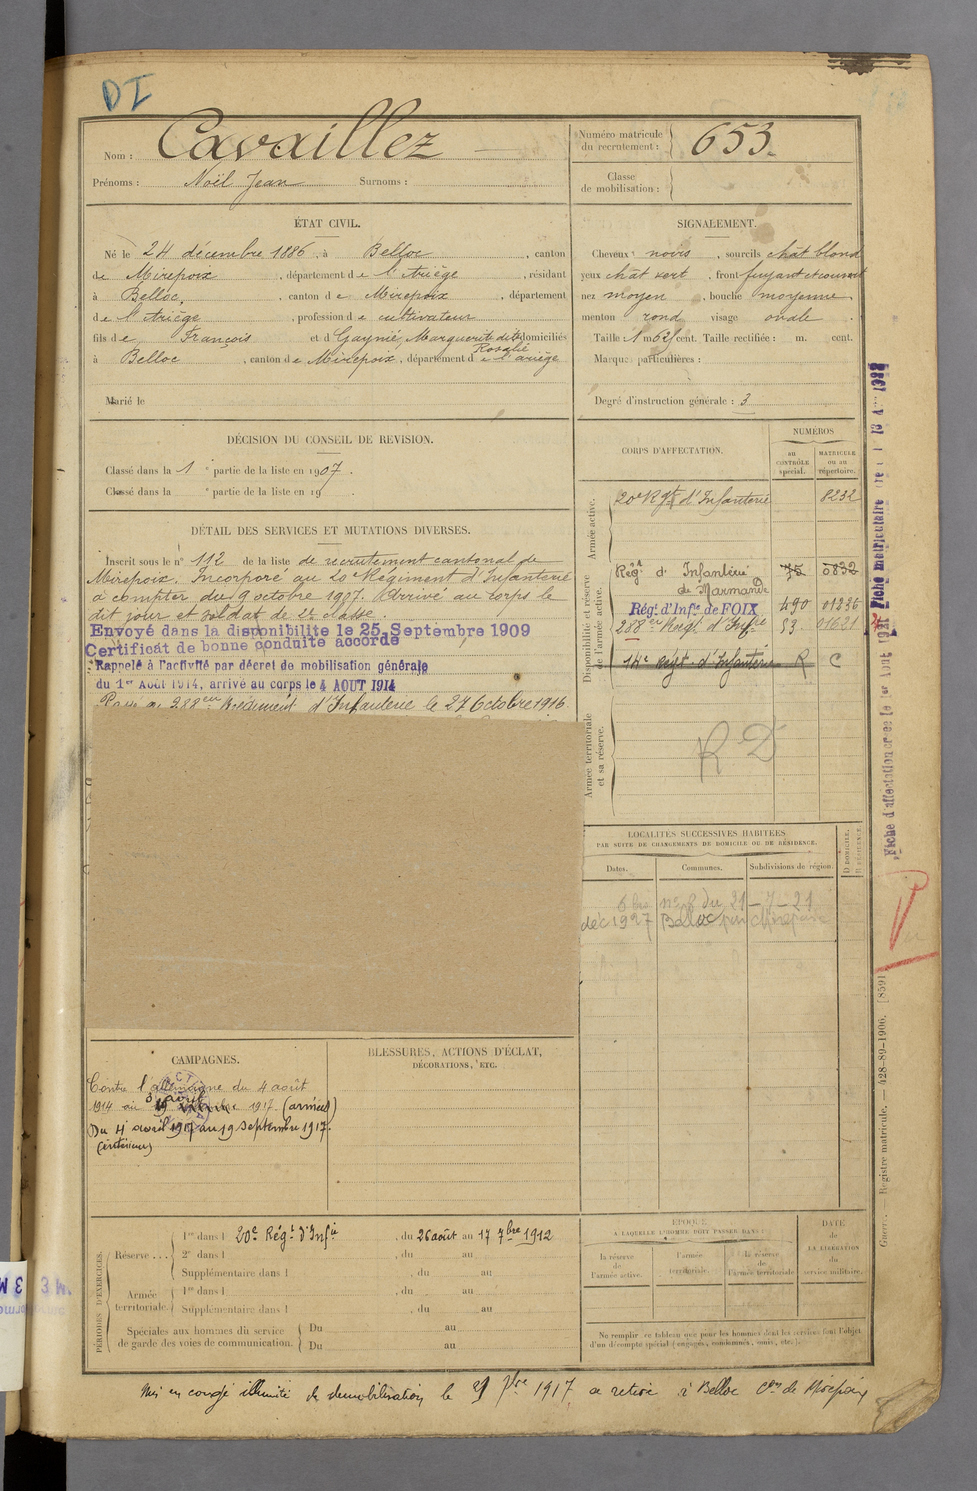 DI
Nom : Cavaillez
Prénoms : Noël Jean Surnoms :
Numéro matricule du recrutement : 653.
Classe de mobilisation :
ÉTAT CIVIL.
Né le 24 décembre 1886, à Belloc, canton
de Mirepoix, département de l'Ariège, résidant
à Belloc, canton de Mirepoix, département
de l'Ariège, profession de cultivateur
fils de François et d Gaynié, Marguerite dite Rosalie domiciliés
à Belloc, canton de Mirepoix, département de l'ariège
Marié le
SIGNALEMENT.
Cheveux noirs, sourcils chât blond
yeux chât vert, front fuyant et
nez moyen, bouche moyenne
menton rond visage ovale.
Taille : 1 m. 62 cent. Taille rectifiée : m. cent.
Marques particulières :
Degré d'instruction générale : 3
DÉCISION DU CONSEIL DE REVISION.
Classé dans la 1e partie de la liste en 1907.
Classé dans la e partie de la liste en 19 .
DÉTAIL DES SERVICES ET MUTATIONS DIVERSES.
Inscrit sous le n° 112 de la liste de recrutement cantonal de
Mirepoix. Incorporé au 20e Régiment d'Infanterie
à compter du 9 octobre 1907. Arrivé au corps le
dit jour et soldat de 2e classe.
Envoyé dans la disponibilité le 25 Septembre 1909
Certificat de bonne conduite accordé
Rappelé à l'activité par décret de mobilisation générale
du 1er Août 1914, arrivé au corps le 4 AOUT 1914
Passé au 288eme Régiment d'Infanterie le 27 Octobre 1916
CORPS D'AFFECTATION.
NUMÉROS
au CONTRÔLE spécial.
MATRICULE ou au répertoire.
Armée active.
20e Rgt d'Infanterie 8232
Disponibilité et réserve de l'armée active.
Régt d'Infanterie de Marmande 75 0832
Régt d'Infie de FOIX 490 01236
288eme Régt d'Infie 53 01621
14e Régt d'Infanterie R C
Armée territoriale et sa réserve.
R D
LOCALITÉS SUCCESSIVES HABITÉES
PAR SUITE DE CHANGEMENTS DE DOMICILE OU DE RÉSIDENCE.
Dates. Communes. Subdivisions de région. D. DOMICILE. R. RÉSIDENCE.
n° 8 du 21-7-21
déc 1927 Belloc par Mirepoix
CAMPAGNES.
Contre l'allemagne du 4 août
1914 au 3 avril 1917. (armées)
Du 4 avril 1917 au 19 septembre 1917.
(intérieur)
BLESSURES, ACTIONS D'ÉCLAT,
DÉCORATIONS, ETC.
PÉRIODES D'EXERCICES.
Réserve ...
1re dans l 20e Régt d'Infie, du 26 août au 17 7bre 1912
2e dans l , du au
Supplémentaire dans l , du au
Armée territoriale.
1re dans l , du au
Supplémentaire dans l , du au
Spéciales aux hommes du service de garde des voies de communication.
Du au
Du au
ÉPOQUE
À LAQUELLE L'HOMME DOIT PASSER DANS :
la réserve de l'armée active.
l'armée territoriale.
la réserve de l'armée territoriale
DATE DE LA LIBÉRATION du service militaire.
Ne remplir ce tableau que pour les hommes dont les services font l'objet
d'un décompte spécial (engagés, omis, etc.)
Mis en congé illimité de démobilisation le 1917 se retire à Belloc Con de Mirepoix
Fiche d'affectation créée le 1er Août 1921
Fiche matriculaire
Guerre. — Registre matricule. — 428-89-1906. [8591]